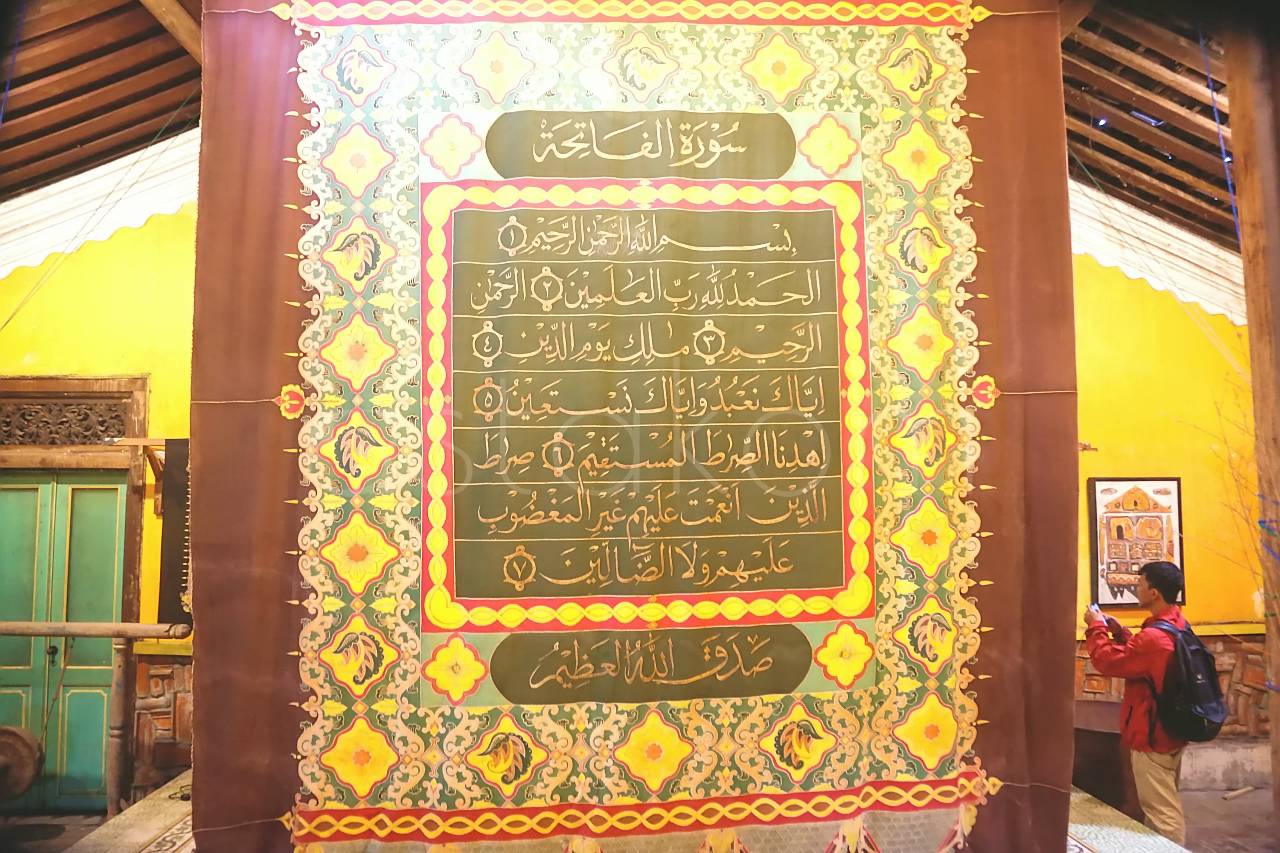 سُورَةُ الفَاتِحَة
بِسْمِ اللَّهِ الرَّحْمٰنِ الرَّحِيْمِ ١
الحَمْدُ لِلَّهِ رَبِّ العَالَمِيْنَ ٢ الرَّحْمٰنِ
الرَّحِيْمِ ٣ مٰلِكِ يَوْمِ الدِّيْنِ ٤
اِيَّاكَ نَعْبُدُ وَاِيَّاكَ نَسْتَعِيْنُ ٥
اِهْدِنَا الصِّرَاطَ المُسْتَقِيْمَ ٦ صِرَاطَ
الَّذِيْنَ اَنْعَمْتَ عَلَيْهِمْ غَيْرِ المَغْضُوْبِ
عَلَيْهِمْ وَلَا الضَّالِّيْنَ ٧
صَدَقَ اللهُ العَظِيْمُ